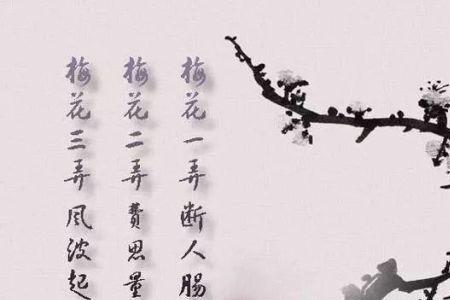 梅花一弄断人腸
梅花二弄費思量
梅花三弄風波起